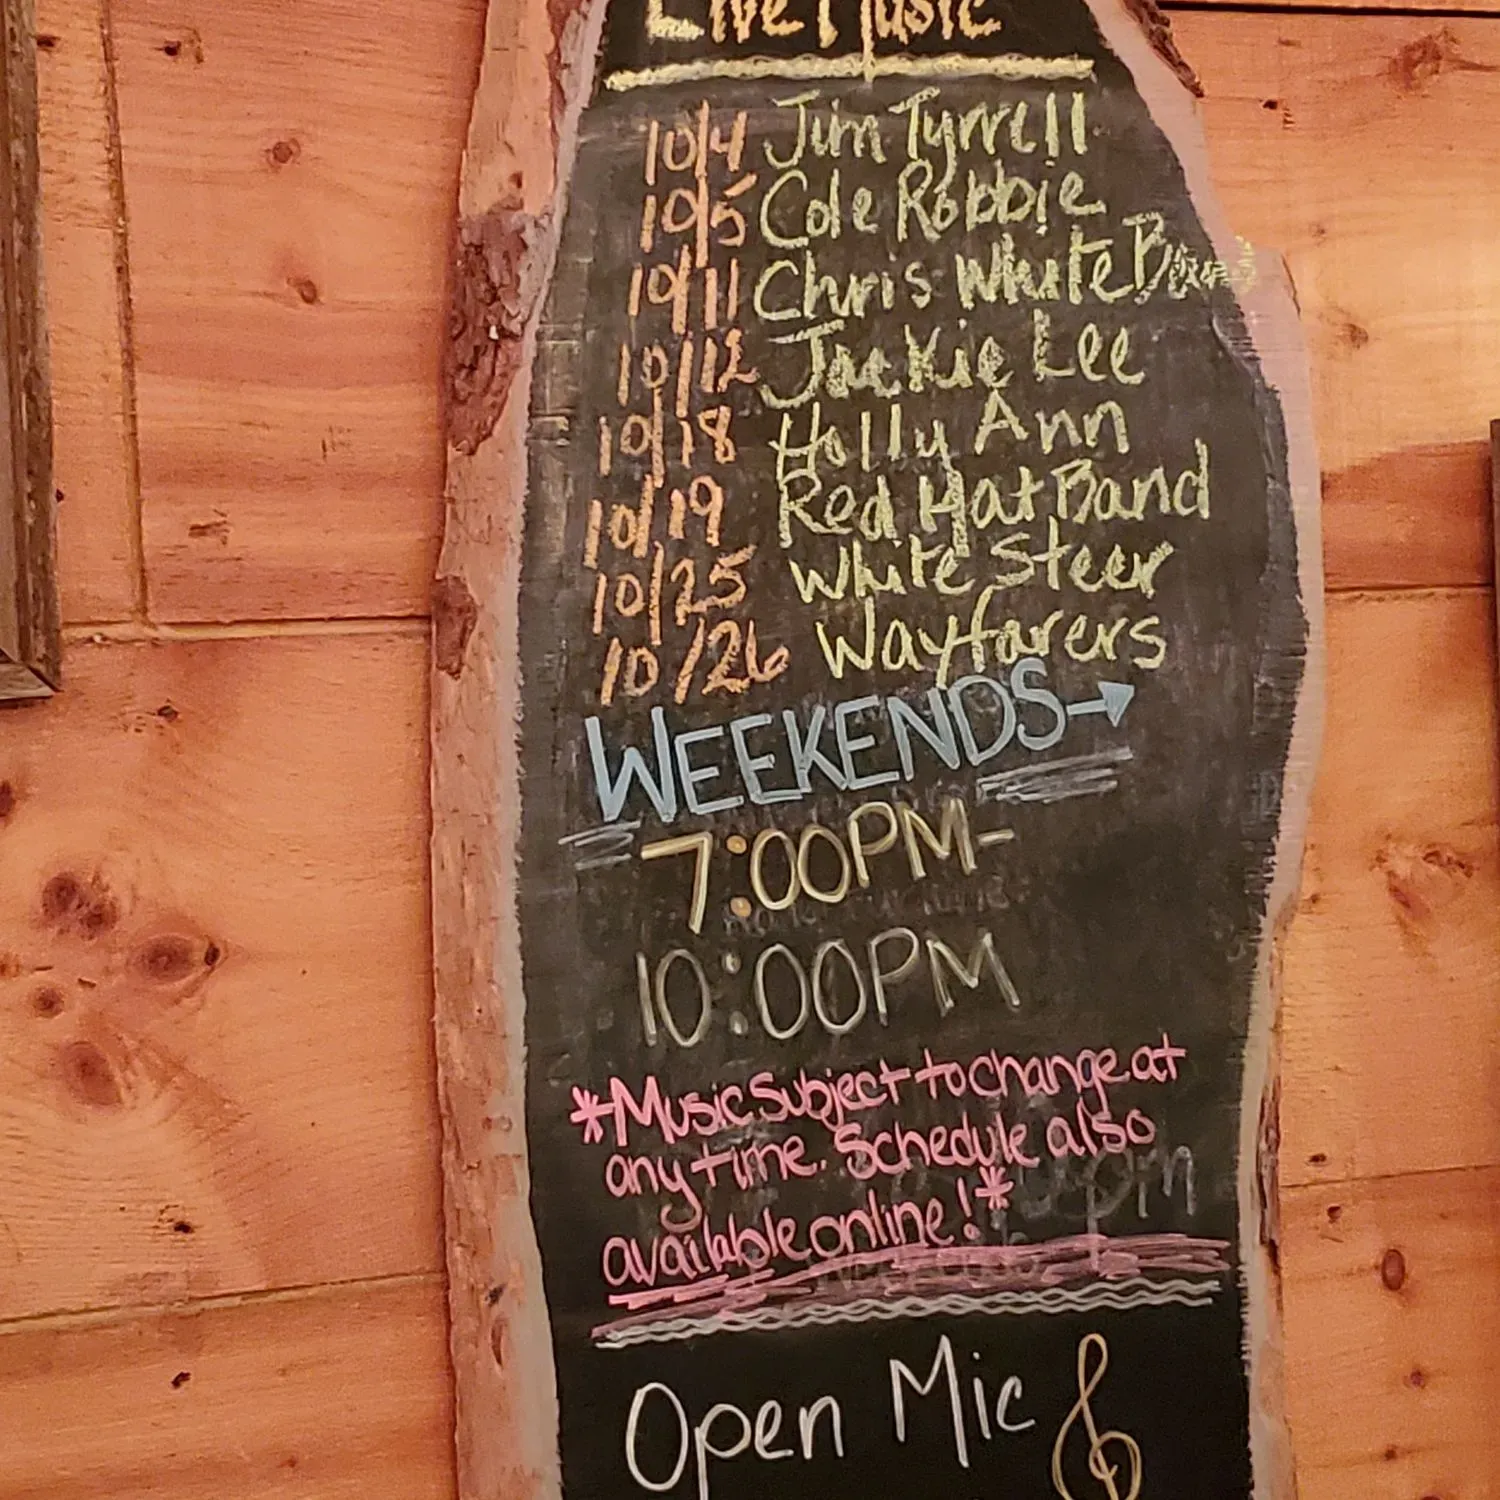 Live Music
10/4 Jim Tyrrell
10/5 Cole Robbie
10/11 Chris White
10/12 Jackie Lee
10/18 Holly Ann
10/19 Red Hat Band
10/25 White Steer
10/26 Wayfarers
WEEKENDS
7:00PM-
10:00PM
*Music subject to change at
anytime. Schedule also
available online!*
Open Mic